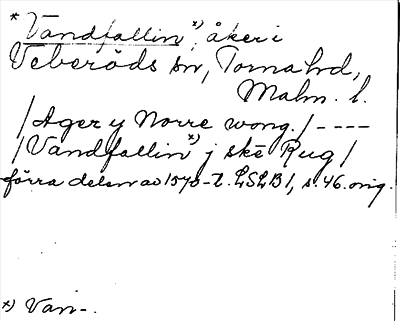 * Vandfallin x), åker i
Veberöds sn, Torna hd,
Malm. l.
/Ager y Norre wong./----
/Vandfallin x) j skè Rug/
förra delen av 1570-t. LSLB1, s. 46. orig.
x) Van-.